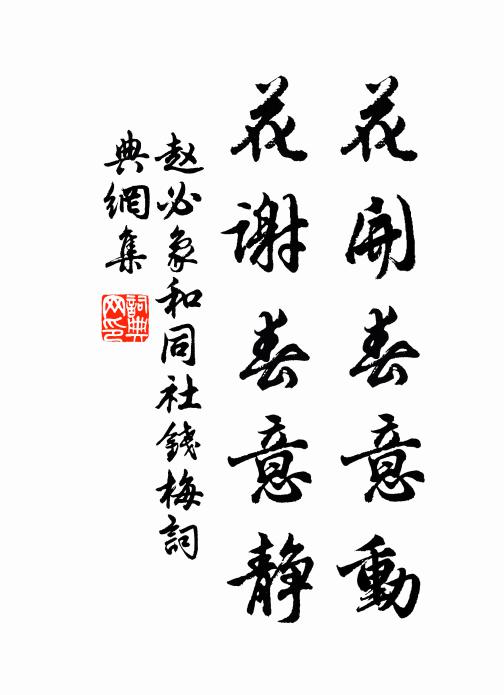 花開春意動
花謝春意静
趙必象和同社錢梅詞
典網集
詞典網印